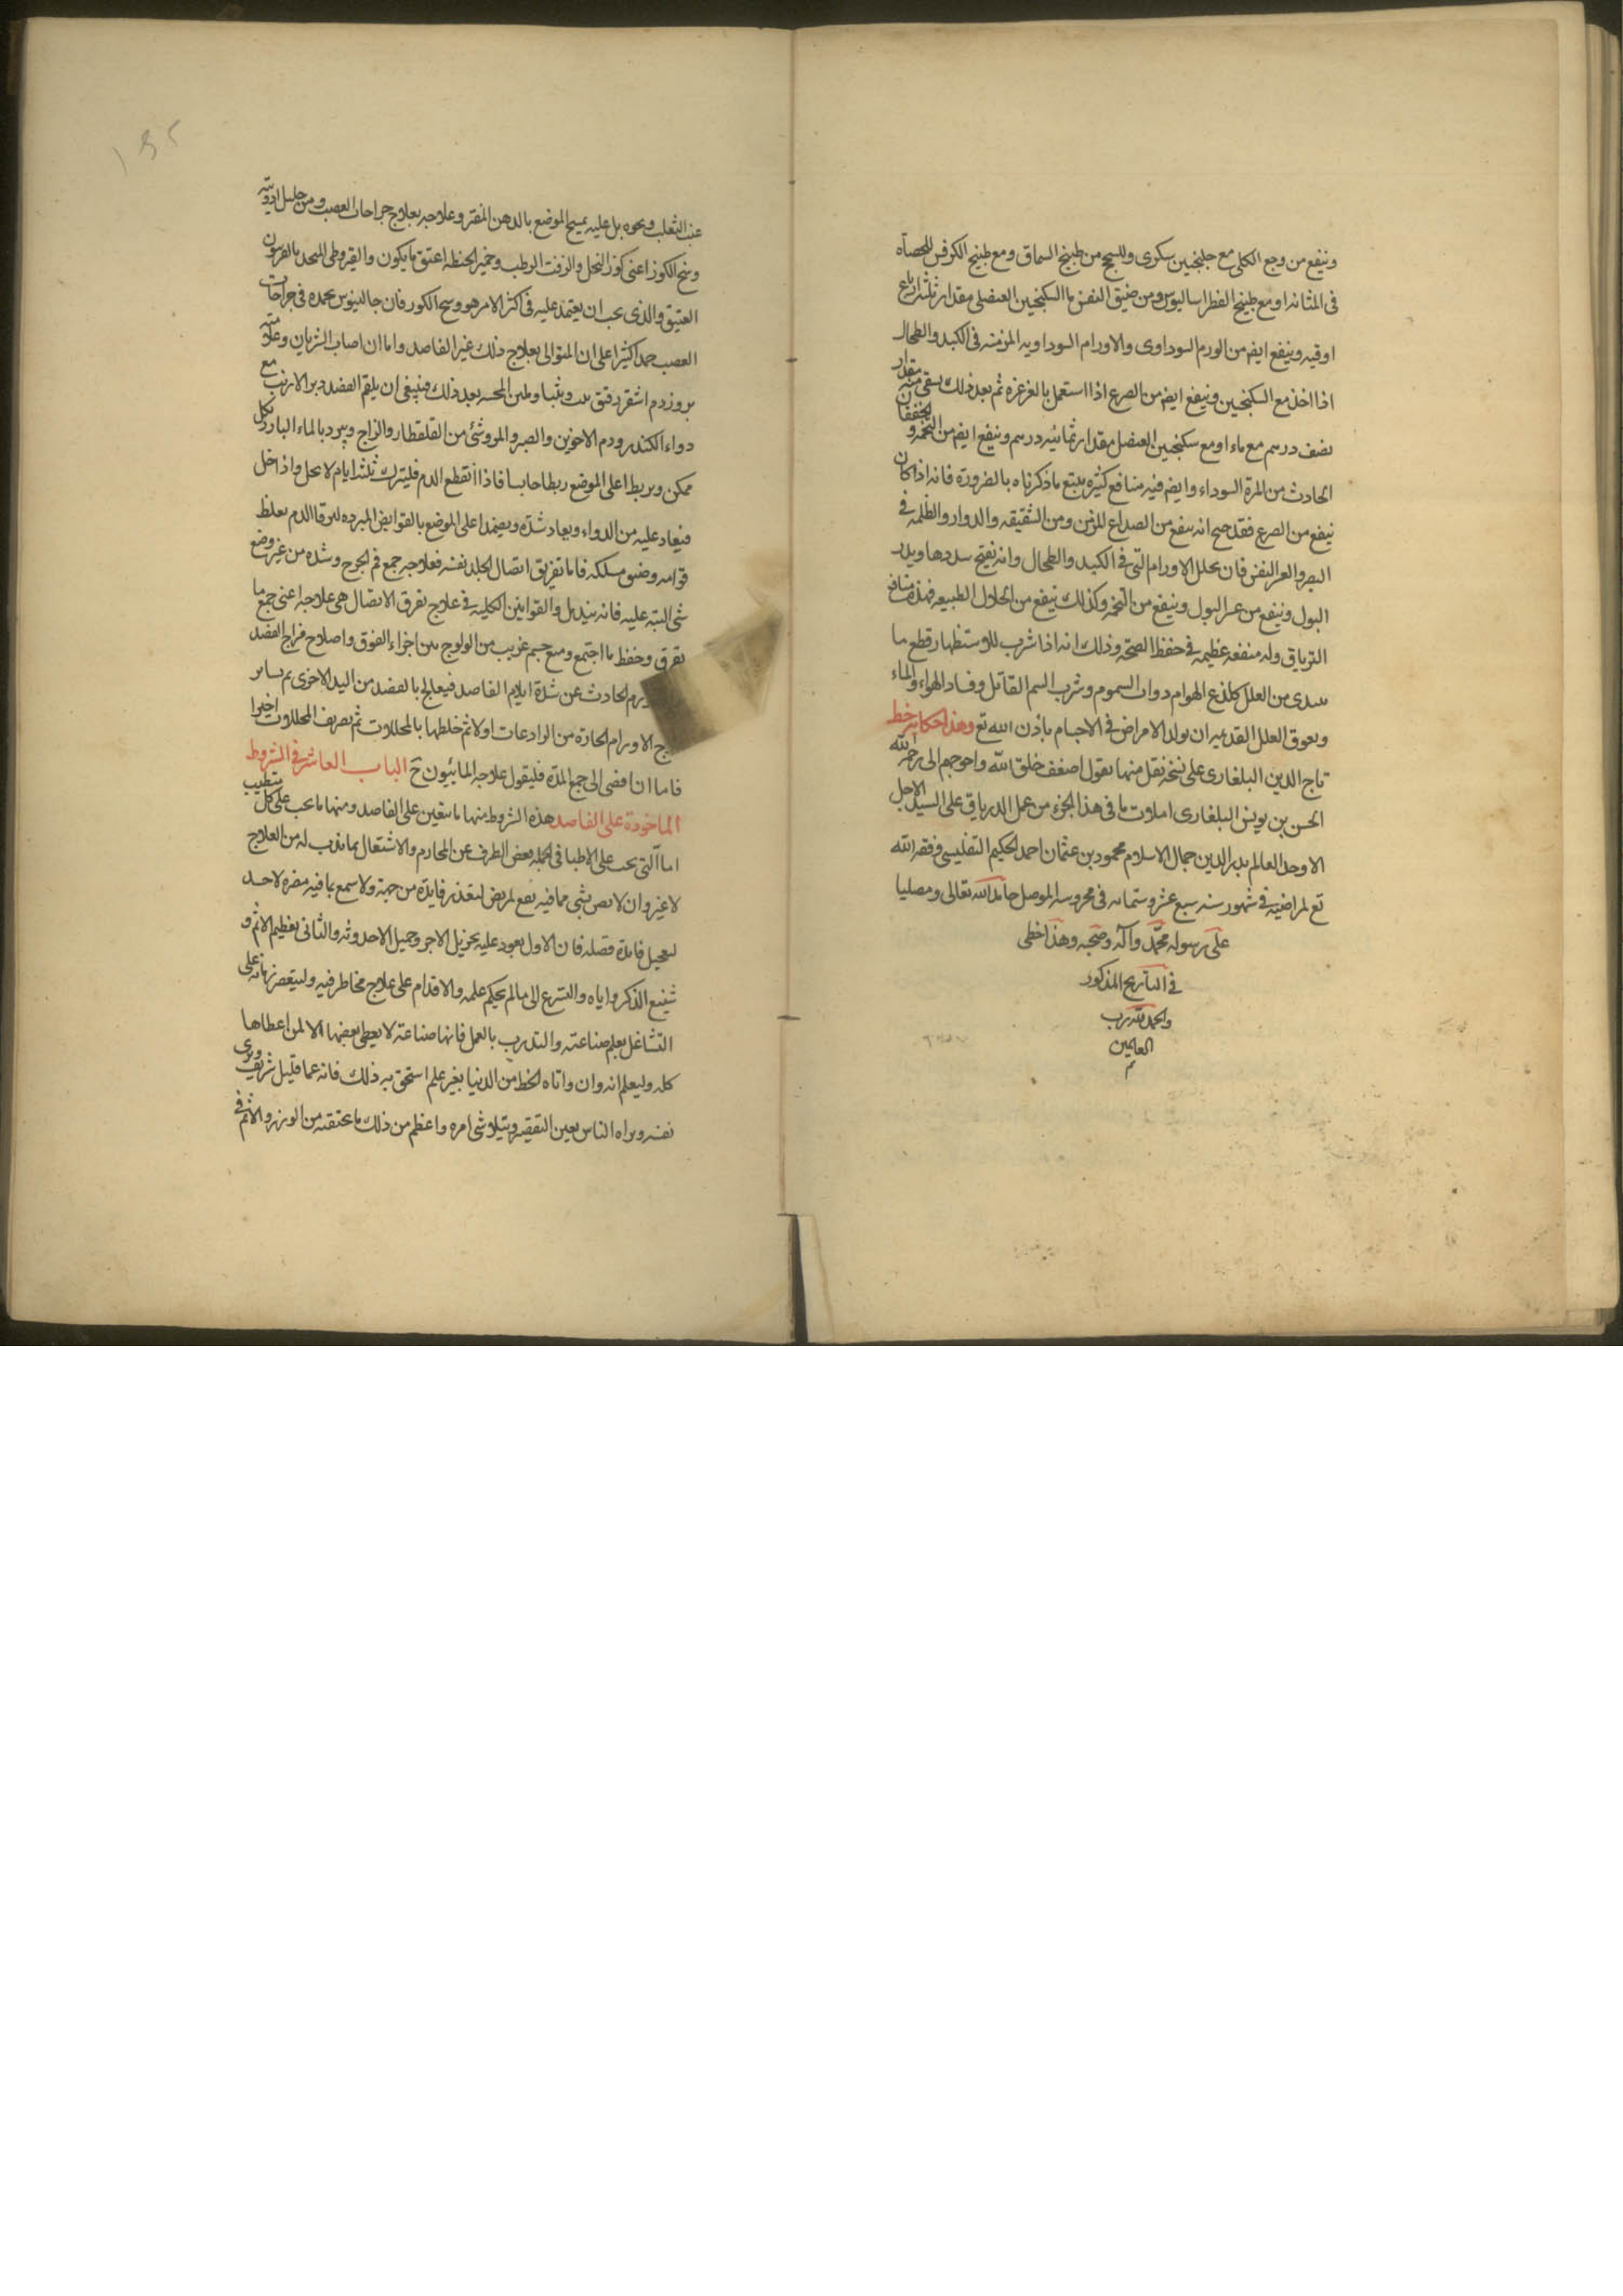 وينفع من وجع الكلى مع جلنجبين سكرى وللسحج من طبيخ السماق ومع طبيخ الكرفس للحصاه
فى المثانه او مع طبيخ الفطراساليون ومن ضيق النفس بالسكنجبين العنصلى مقدار ثلثة ارباع
اوقيه وينفع ايضا من الورم السوداوى والاورام السوداويه المزمنه فى الكبد والطحال
اذا اخذ مع السكنجبين وينفع ايضا من الصرع اذا استعمل بالغرغره ثم بعد ذلك يسقى منه مقدار
نصف درهم مع ماء او مع سكنجبين العنصل مقدار ثمانية درهم وينفع ايضا من التخمه والخفقان
الحادث من المرة السوداء وايضا فيه منافع كثيره يتبع ما ذكرناه بالضرورة فانه اذا كان
ينفع من الصرع فقد صح انه ينفع من الصداع المزمن ومن الشقيقه والدوار والظلمه فى
البصر والعسر النفس فان يحلل الاورام التى فى الكبد والطحال وانه يفتح سددها ويدر
البول وينفع من عسر البول وينفع من التخمه وكذلك ينفع من انحلال الطبيعه فهذه منافع
الترياق وله منفعه عظيمه فى حفظ الصحة وذلك انه اذا شرب للاستظهار قطع ما
يبتدى من العلل كلذع الهوام ذوات السموم وشرب السم القاتل وفساد الهواء والماء
ويعوق العلل القديم ان يولد الامراض فى الاجسام باذن الله تع وهذا حكايه خط
تاج الدين البلغارى على نسخة نقل منها يقول اضعف خلق الله واحوجهم الى رحمة الله
الحسن بن يونس البلغارى املات ما فى هذا الجزء من عمل الدرياق على السيد الاجل
الاوحد العالم بدر الدين جمال الاسلام محمود بن عثمان احمد الحكيم التفليسى وفقه الله
تع لمراضيه فى شهور سنه سبع عشر وستمائه فى محروسه الموصل حامدا لله تعالى ومصليا
على رسوله محمد وآله وصحبه وهذا خطى
فى التاريخ المذكور
والحمد لله رب
العالمين
م
عنب الثعلب ونحوه بل عليه بمسح الموضع بالدهن المفتر وعلاجه بعلاج جراحات العصب ومن جليل ادويته
وسخ الكوز اعنى كوز النحل والزفت الرطب وخمير الحنطه اعتق ما يكون والقيروطى المتخذ بالفربيون
العتيق والذى يجب ان يعتمد عليه فى اكثر الامر هو وسخ الكور فان جالينوس يحمده فى جراحات
العصب حمدا كثيرا على ان المتوالى بعلاج ذلك غير الفاصد واما ان اصاب الشريان وعلامته
بروز دم اشقر رقيق بعد ذلك فينبغى ان يلقم الفصد وبر الارنب مع
دواء الكندر ودم الاخوين والصبر والمر وشئ من القلقطار والزاج ويبرد بالماء البارد بكل
ممكن ويربط اعلى الموضع ربطا حابسا فاذا انقطع الدم فليترك ثلثة ايام لا يحل واذا حل
فيعاد عليه من الدواء ويعاد شده ويضمد اعلى الموضع بالقوابض المبرده ليرقا الدم بغلظ
قوامه وضيق مسلكه فاما تفريق اتصال الجلد نفسه فعلاجه جمع فم الجرح وشده من غير وضع
شى البته عليه فانه يندمل والقوانين الكليه فى علاج تفرق الاتصال هى علاجه اعنى جمع ما
تفرق وحفظ ما اجتمع ومنع جسم غريب من الولوج بين اجزاء الفوق واصلاح مزاج الفصد
ورم الحادث عن شدة ايلام الفاصد فيعالج بالفصد من اليد الاخرى ثم بساير
ج الاورام الحارة من الرادعات اولا ثم خلطها بالمحللات ثم بصرف المحللات اخيرا
فاما ان افضى الى جمع المدة فليقول علاجه المائيون ح الباب العاشر فى الشروط
الماخوذة على الفاصد هذه الشروط منها ما يتعين على الفاصد ومنها ما يجب على كل متطبب
اما التى يجب على الاطبا فى الجمله بعض الطرف عن المحارم والاشتغال بما ندب له من العلاج
لا غير وان لا يضن بشى مما فيه نفع لمريض لتعذر فايدة من جهته ولا يسمح بما فيه مضره لاحد
لتعجيل فائدة قصله فان الاول يعود عليه بجزيل الاجر وجميل الاحدوثه والثانى بعظيم الاثم و
شنيع الذكر واياه والتسرع الى ما لم يحكم علمه والاقدام على علاج مخاطر فيه وليقصر زمانه على
التشاغل بعلم صناعته والتدرب بالعمل فانها صناعة لا يعطى بعضها الا لمن اعطاها
كله وليعلم انه وان واتاه الحظ من الدنيا بغير علم استحق به ذلك فانه عما قليل شريف ويرى
نفسه ويراه الناس بعين التقصير ويتلاشى امره واعظم من ذلك ما يحتقبه من الوزر والاثم فى